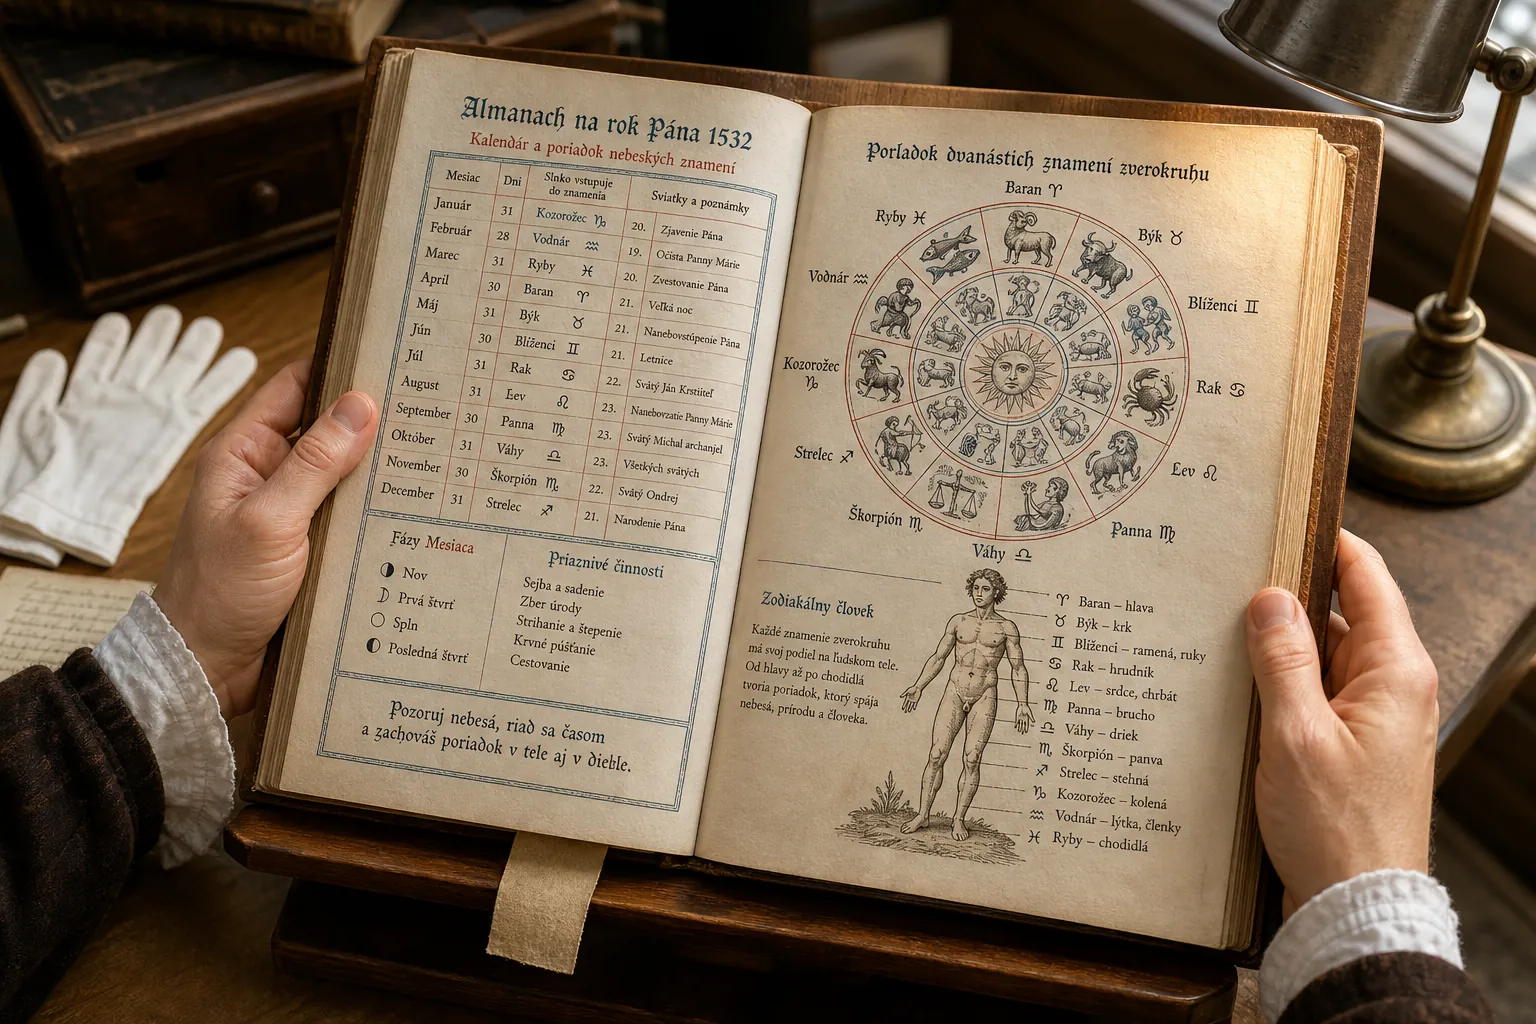 Almanach na rok Pána 1532
Kalendár a poriadok nebeských znamení
Mesiac Dni Slnko vstupuje do znamenia Sviatky a poznámky
Január 31 Kozorožec ♑ 20. Zjavenie Pána
Február 28 Vodnár ♒ 19. Očista Panny Márie
Marec 31 Ryby ♓ 20. Zvestovanie Pána
Apríl 30 Baran ♈ 21. Veľká noc
Máj 31 Býk ♉ 21. Nanebovstúpenie Pána
Jún 30 Blíženci ♊ 21. Letnice
Júl 31 Rak ♋ 22. Svätý Ján Krstiteľ
August 31 Lev ♌ 23. Nanebovzatie Panny Márie
September 30 Panna ♍ 23. Svätý Michal archanjel
Október 31 Váhy ♎ 23. Všetkých svätých
November 30 Škorpión ♏ 22. Svätý Ondrej
December 31 Strelec ♐ 21. Narodenie Pána
Fázy Mesiaca
Nov
Prvá štvrť
Spln
Posledná štvrť
Priaznivé činnosti
Sejba a sadenie
Zber úrody
Strihanie a štepenie
Krvné púšťanie
Cestovanie
Pozoruj nebesá, riaď sa časom
a zachováš poriadok v tele aj v
Poriadok dvanástich znamení zverokruhu
Baran ♈
Býk ♉
Blíženci ♊
Rak ♋
Lev ♌
Panna ♍
Váhy ♎
Škorpión ♏
Strelec ♐
Kozorožec ♑
Vodnár ♒
Ryby ♓
Zodiakálny človek
Každé znamenie zverokruhu
má svoj podiel na ľudskom tele.
Od hlavy až po chodidlá
tvoria poriadok, ktorý spája
nebesá, prírodu a človeka.
♈ Baran – hlava
♉ Býk – krk
♊ Blíženci – ramená, ruky
♋ Rak – hrudník
♌ Lev – srdce, chrbát
♍ Panna – brucho
♎ Váhy – driek
♏ Škorpión – panva
♐ Strelec – stehná
♑ Kozorožec – kolená
♒ Vodnár – lýtka, členky
♓ Ryby – chodidlá